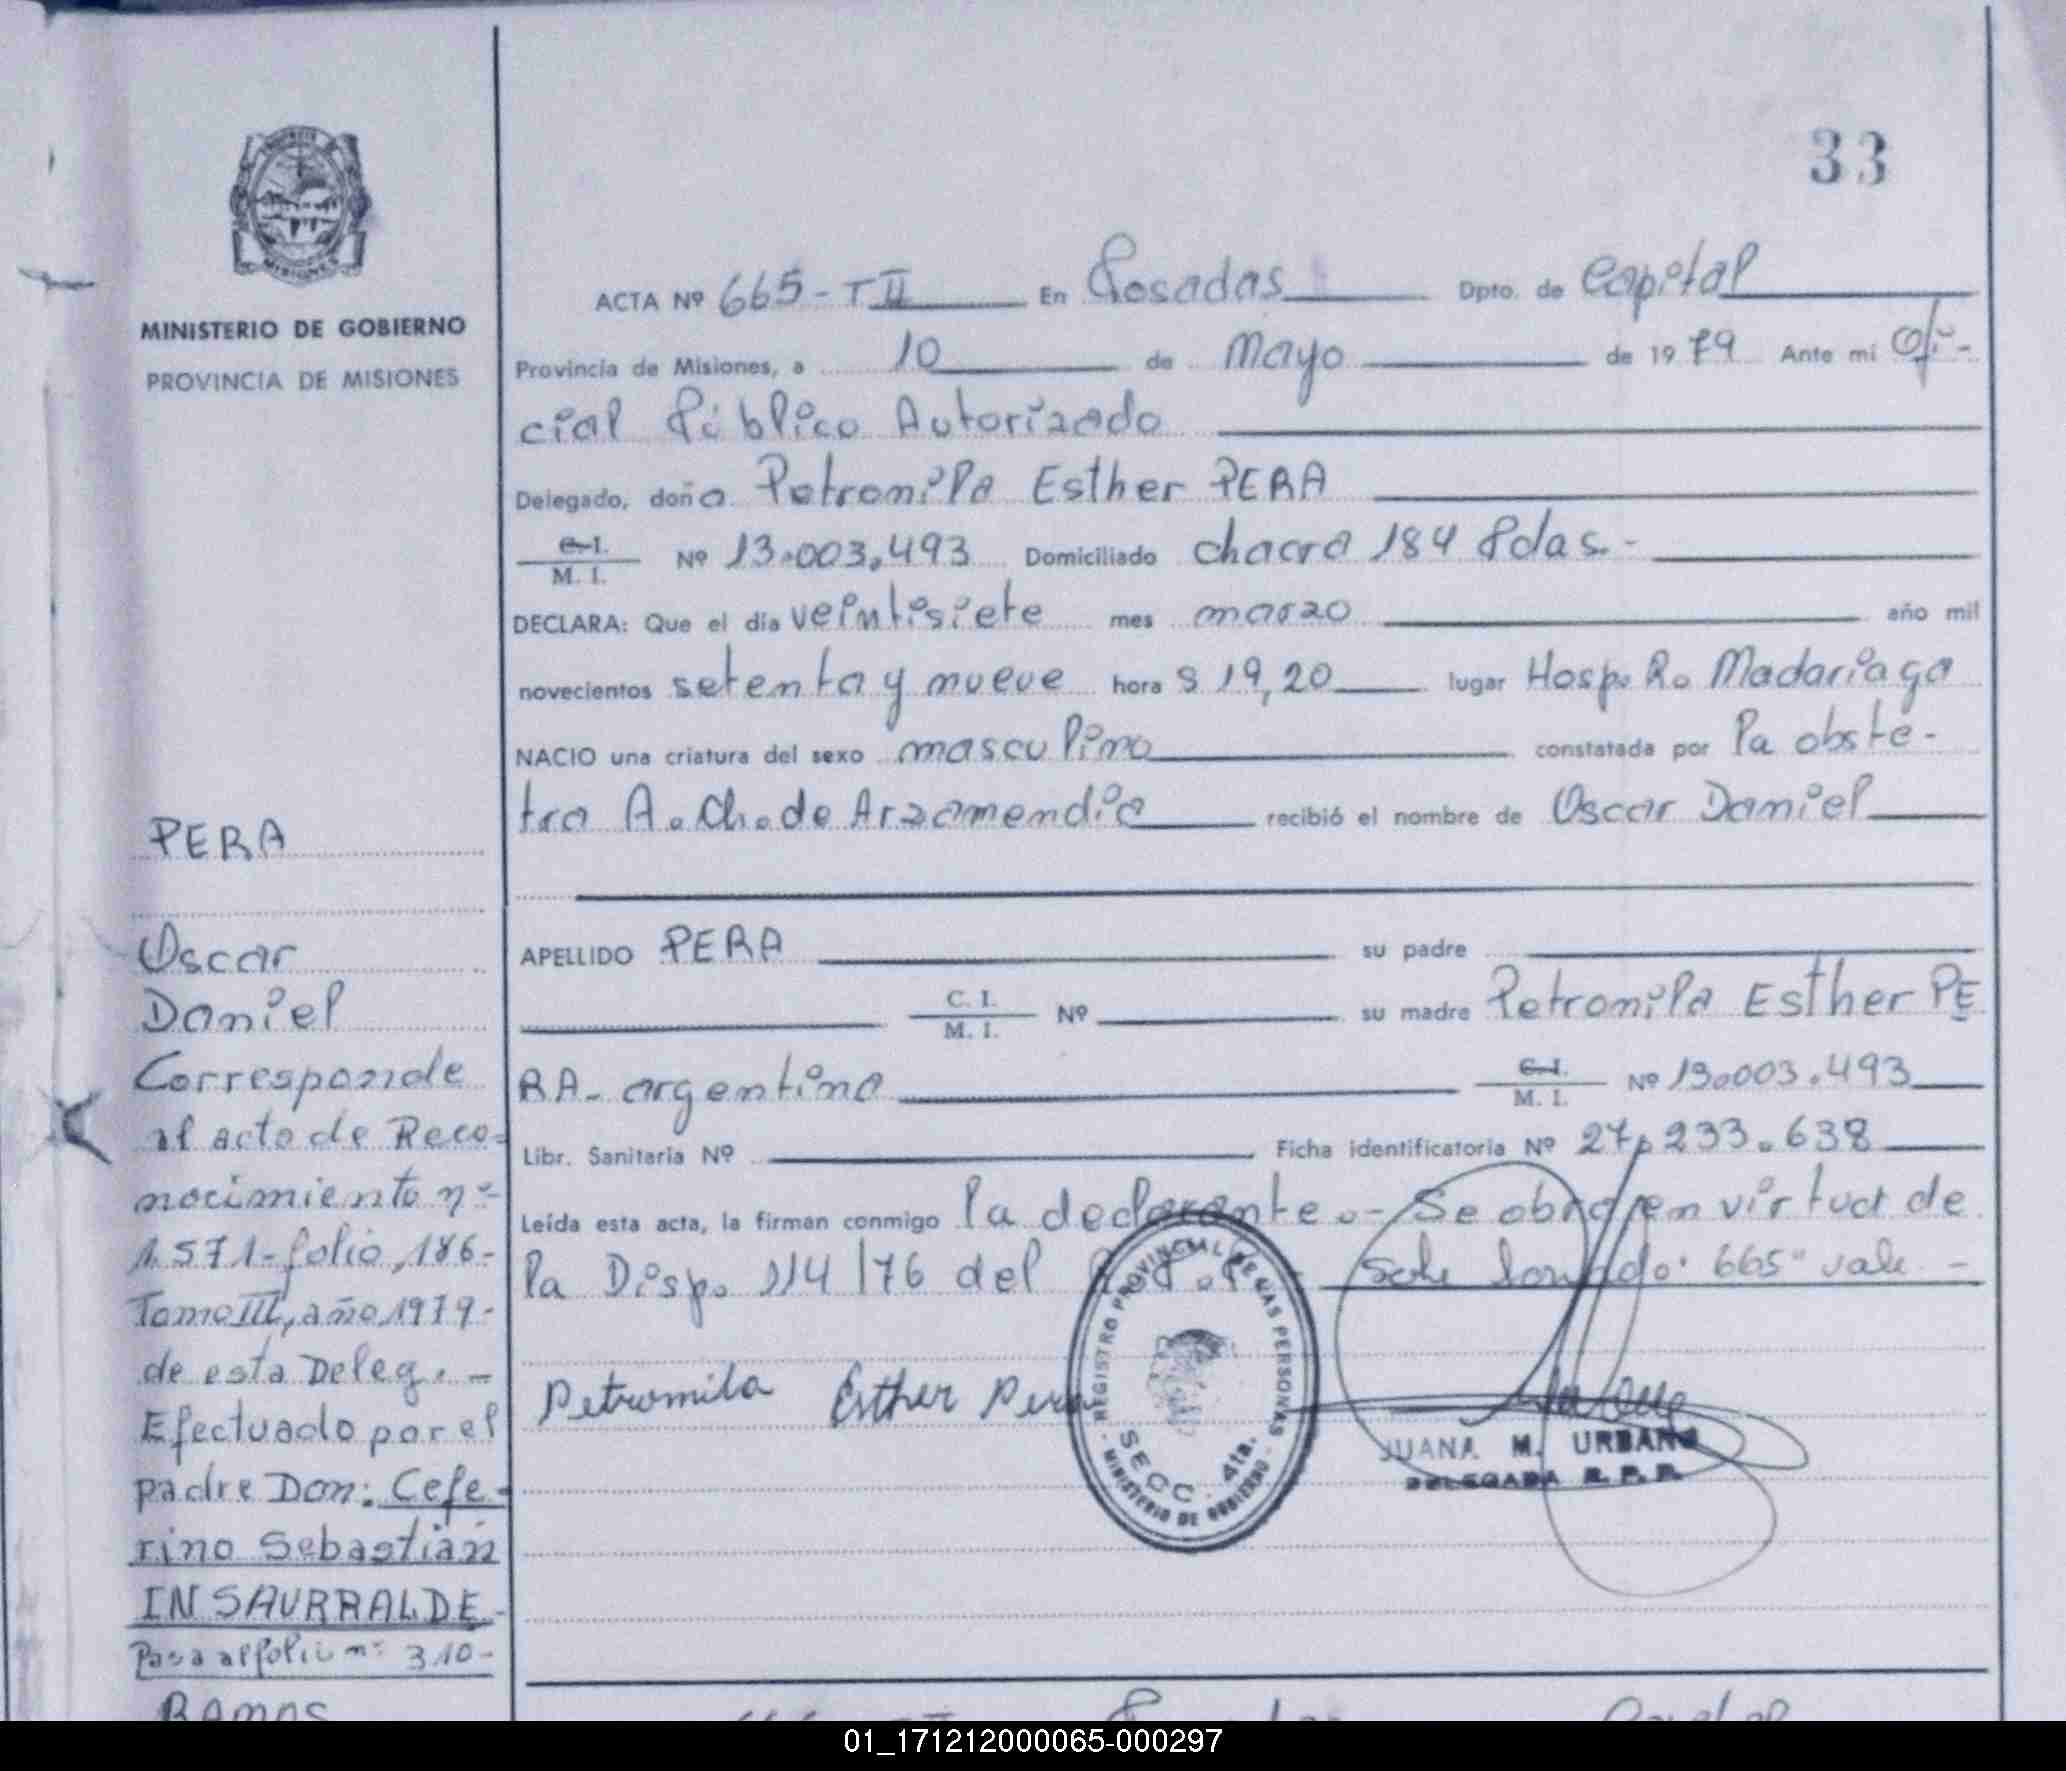 33
MINISTERIO DE GOBIERNO
PROVINCIA DE MISIONES
ACTA Nº 665-TII En Posadas Dpto. de Capital
Provincia de Misiones, a 10 de Mayo de 1979 Ante mi Ofi-
cial Público Autorizado
Delegado, doña Petronila Esther PERA
C.I. M. I. Nº 13.003.493 Domiciliado chacra 184 Pdas.-
DECLARA: Que el día veintisiete mes marzo año mil
novecientos setenta y nueve hora s 19,20 lugar Hosp. R. Madariaga
NACIO una criatura del sexo masculino constatada por la obste-
tra A. Ch. de Arzamendia recibió el nombre de Oscar Daniel
APELLIDO PERA su padre
C. I. M. I. Nº su madre Petronila Esther PE
RA- argentina C.I. M. I. Nº 13.003.493
Libr. Sanitaria Nº Ficha identificatoria Nº 27.233.638
Leída esta acta, la firman conmigo la declarante.- Se obró en virtud de
la Disp. 114/76 del 665" vale -
Petronila Esther Pera
REGISTRO PROVINCIAL DE LAS PERSONAS
SECC. 4ta.
MINISTERIO DE GOBIERNO
JUANA M. URBANO
DELEGADA R. P. P.
PERA
Oscar
Daniel
Corresponde
al acta de Reco-
nocimiento nº
1.571-folio,186-
Tomo III, año,1979-
de esta Deleg. -
Efectuado por el
padre Don: Cefe-
rino Sebastián
INSAURRALDE-
Pasa al folio nº 310-
RAMOS
01_171212000065-000297